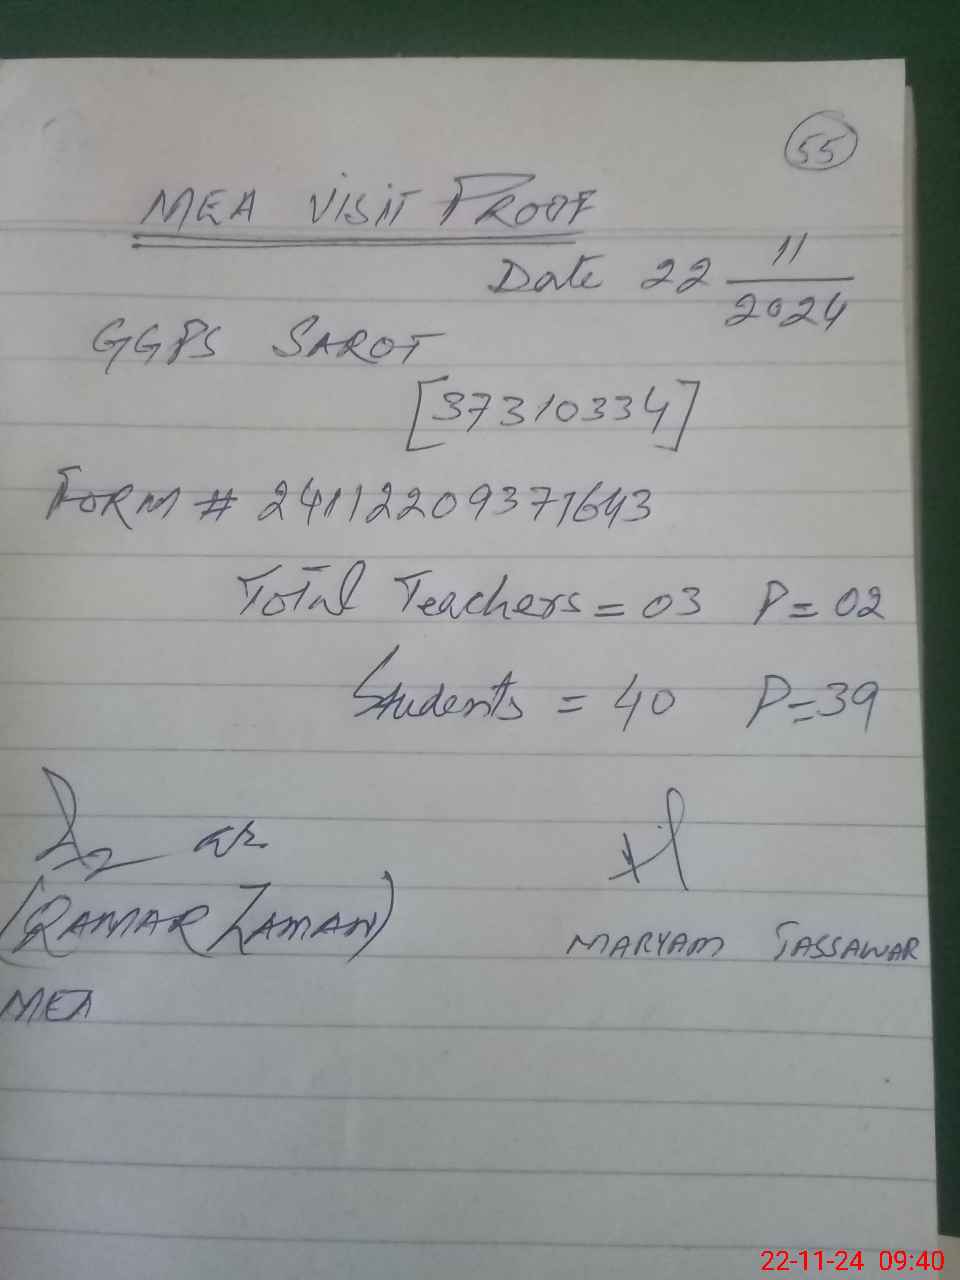 55
MEA VISIT PROOF
Date 22 11/2024
GGPS SAROT
[37310334]
FORM # 24112209371643
Total Teachers = 03 P = 02
Students = 40 P = 39
(QAMAR ZAMAN)
MARYAM TASSAWAR
MEA
22-11-24 09:40